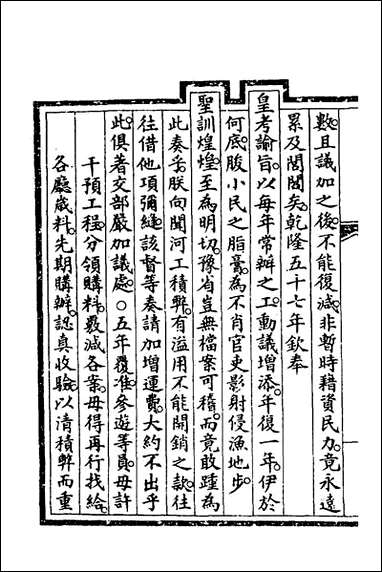 數且議加之後不能復減非暫時藉資民力竟永遠
累及閭閻矣乾隆五十七年欽奉
皇考諭旨以每年常辦之工動議增添年復一年伊於
何底朘小民之脂膏為不肖官吏影射侵漁地步
聖訓煌煌至為明切豫省豈無檔案可稽而竟敢踵為
此奏乎朕向聞河工積弊有溢用不能開銷之款往
往借他項彌縫該督等奏請加增運費大約不出乎
此俱著交部嚴加議處○五年覆准參遊等員毋許
干預工程分領購料覈減各案毋得再行找給
各廳歲料先期購辦認真收驗以清積弊而重